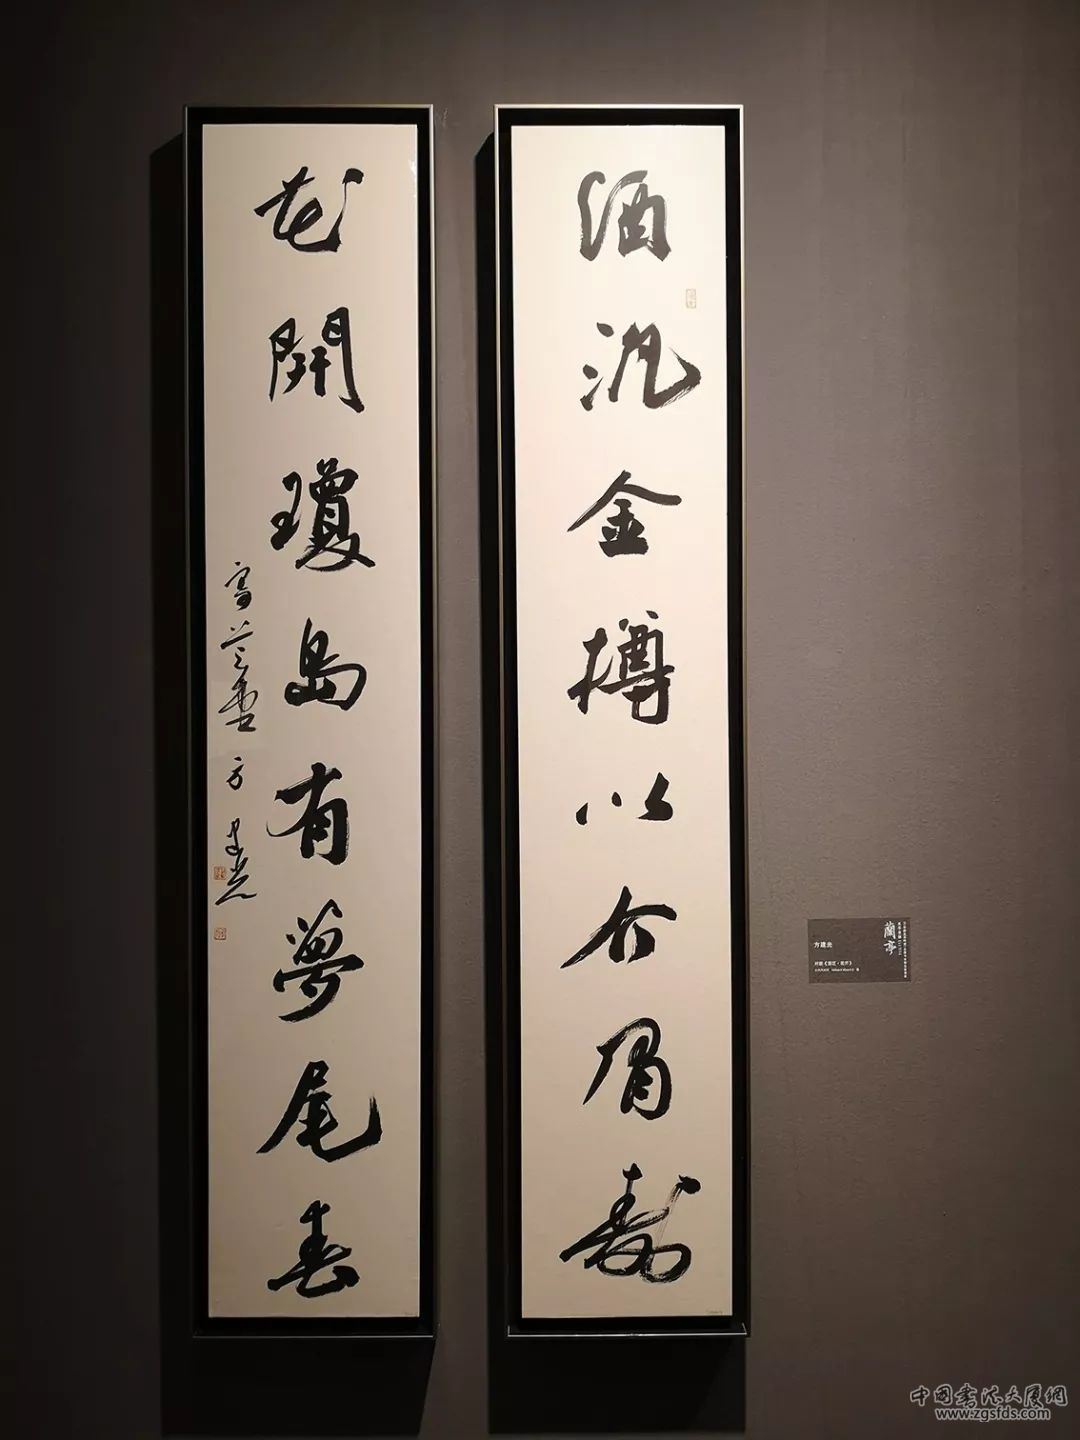 酒汎金樽以介眉壽
花開瓊島有夢尾春
寫蘭亭 方建光
蘭亭
方建光
中国书法大厦網
www.zgsfds.com